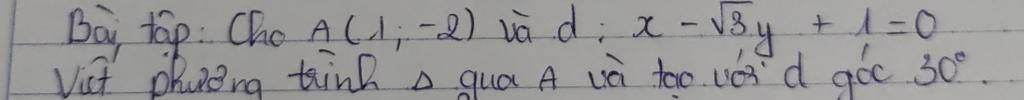 Bài tập: Cho A(1; -2) và d: x - √3y + 1 = 0
Viết phương trình Δ qua A và tạo với d góc 30°.